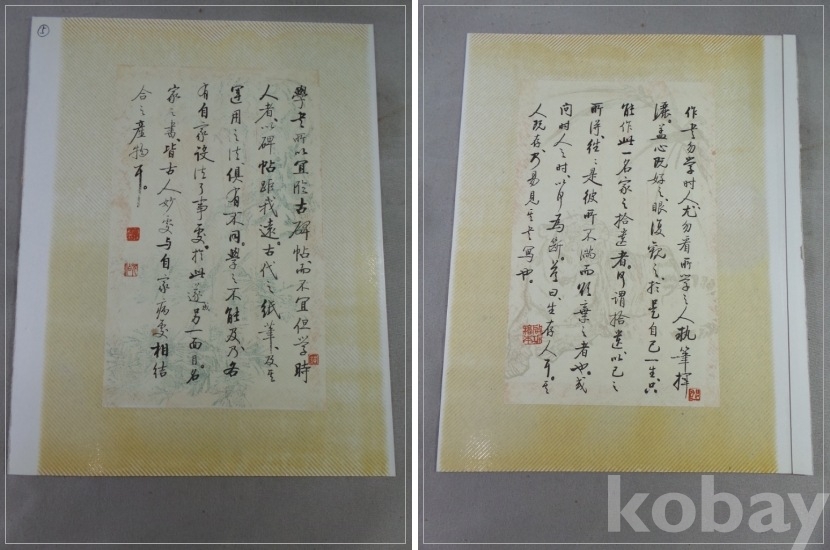 5
學书所以宜臨古碑帖、而不宜但学時
人者、以碑帖距我遠。古代之紙筆、及其
運用之法、俱有不同。學之不能及、乃各
有自家設法了事處。於此遂成另一面目。名
家之書、皆古人妙處与自家病處相結
合之產物耳。
作书勿学时人、尤勿看所学之人执筆揮
灑。盖心既好之、眼復觀之、於是自己一生、只
能作此一名家之拾遺者。何謂拾遺、以己之
所得、往往是彼所不滿而欲棄之者也。或
问时人之时、以何為斷。答曰、生存人耳。其
人既存、乃易見其书寫也。
kobay